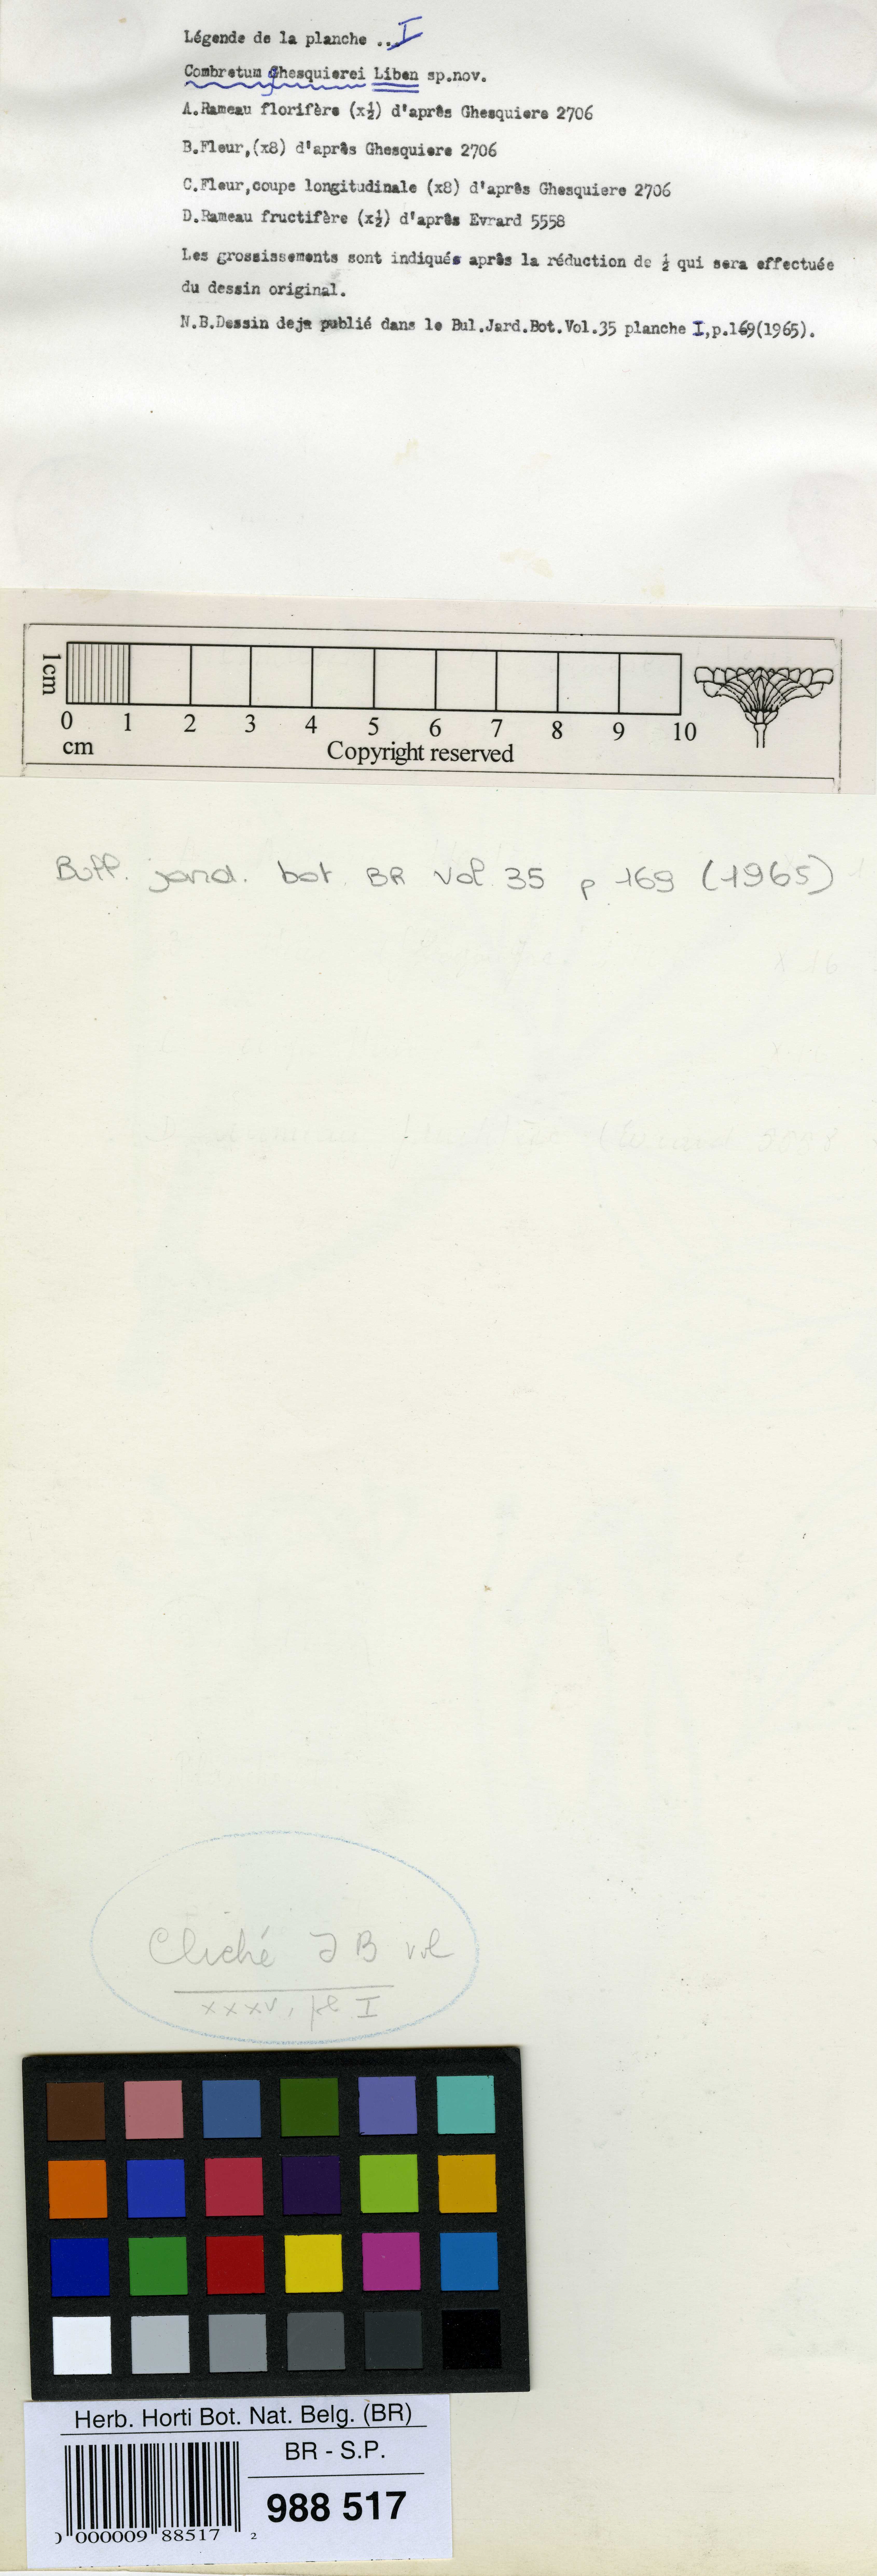 Légende de la planche ... I
Combretum Ghesquierei Liben sp.nov.
A.Rameau florifère (x½) d'après Ghesquiere 2706
B.Fleur,(x8) d'après Ghesquiere 2706
C.Fleur,coupe longitudinale (x8) d'après Ghesquiere 2706
D.Rameau fructifère (x½) d'après Evrard 5558
Les grossissements sont indiqués après la réduction de ½ qui sera effectuée
du dessin original.
N.B.Dessin deja publié dans le Bul.Jard.Bot.Vol.35 planche I,p.169(1965).
1cm
0 1 2 3 4 5 6 7 8 9 10
cm
Copyright reserved
Bull. jard. bot BR vol 35 p 169 (1965)
x 16
Cliché J B vol
xxxv, pl I
Herb. Horti Bot. Nat. Belg. (BR)
BR - S.P.
988 517
0 000009 88517 2